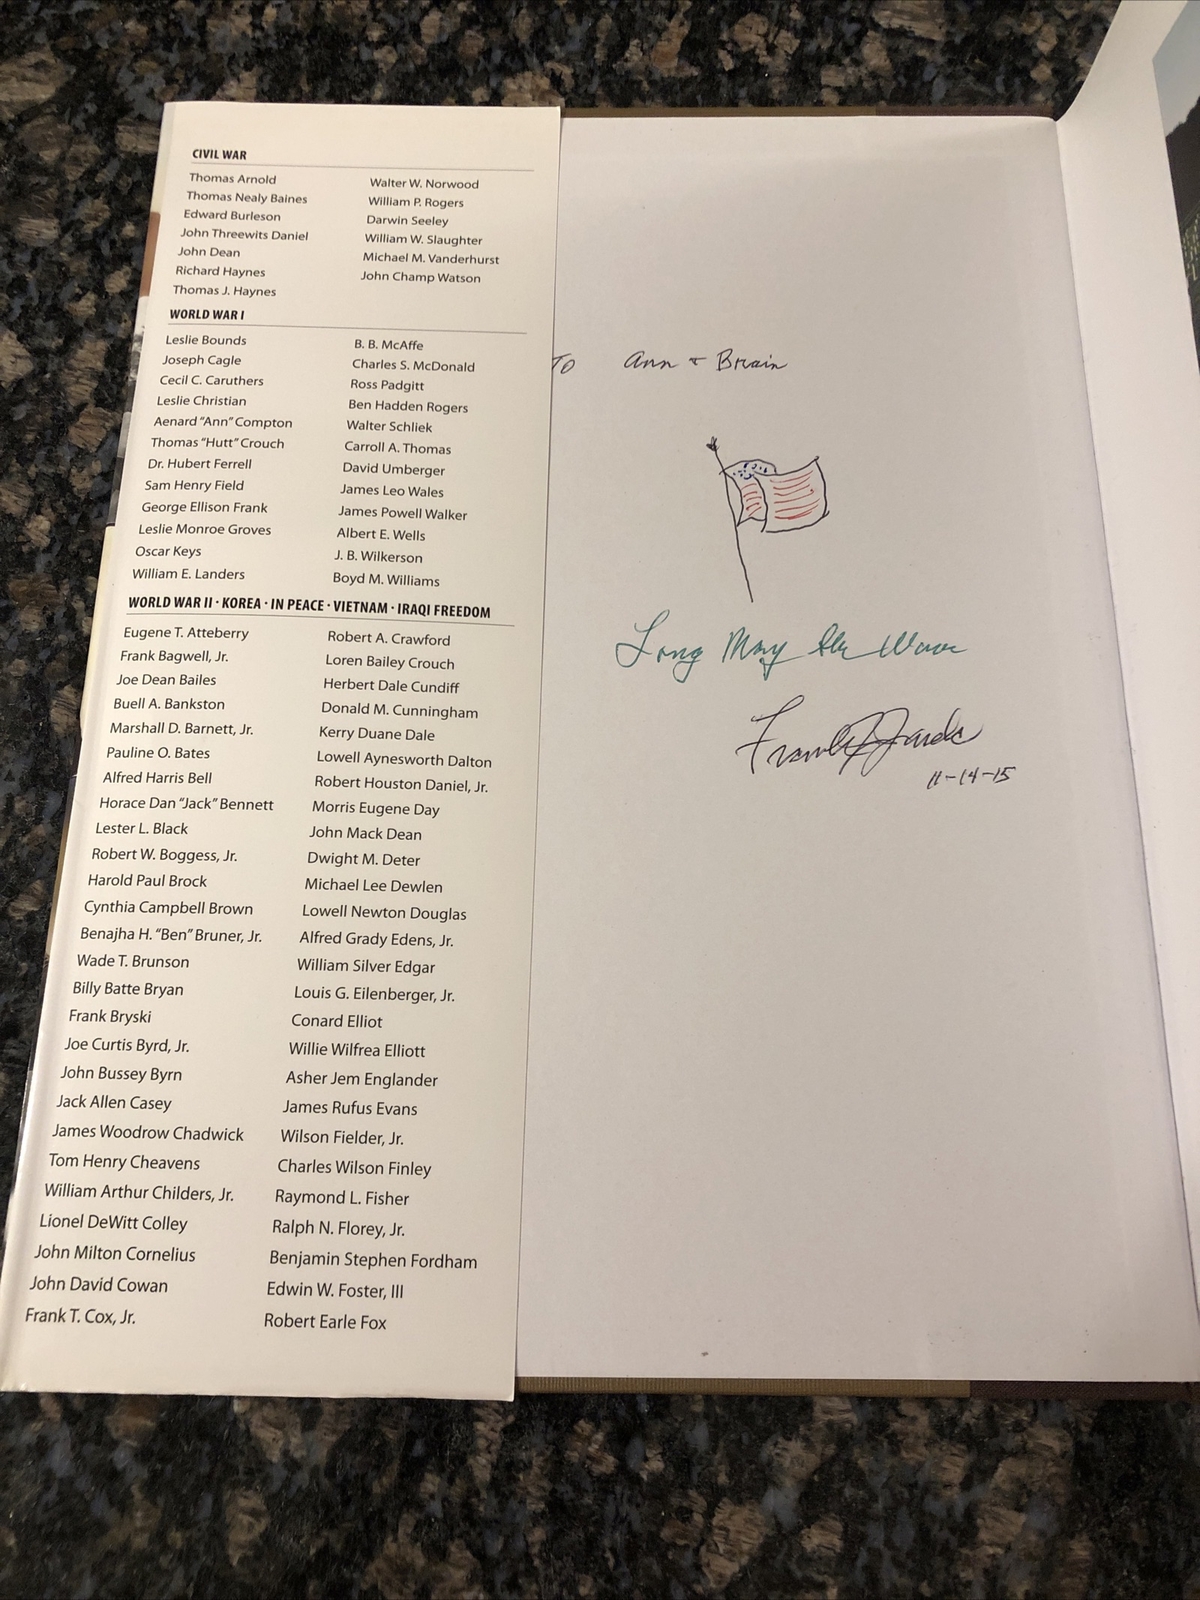 CIVIL WAR
Thomas Arnold
Thomas Nealy Baines
Edward Burleson
John Threewits Daniel
John Dean
Richard Haynes
Thomas J. Haynes
Walter W. Norwood
William P. Rogers
Darwin Seeley
William W. Slaughter
Michael M. Vanderhurst
John Champ Watson
WORLD WAR I
Leslie Bounds
Joseph Cagle
Cecil C. Caruthers
Leslie Christian
Aenard "Ann" Compton
Thomas "Hutt" Crouch
Dr. Hubert Ferrell
Sam Henry Field
George Ellison Frank
Leslie Monroe Groves
Oscar Keys
William E. Landers
B. B. McAffe
Charles S. McDonald
Ross Padgitt
Ben Hadden Rogers
Walter Schliek
Carroll A. Thomas
David Umberger
James Leo Wales
James Powell Walker
Albert E. Wells
J. B. Wilkerson
Boyd M. Williams
WORLD WAR II · KOREA · IN PEACE · VIETNAM · IRAQI FREEDOM
Eugene T. Atteberry
Frank Bagwell, Jr.
Joe Dean Bailes
Buell A. Bankston
Marshall D. Barnett, Jr.
Pauline O. Bates
Alfred Harris Bell
Horace Dan "Jack" Bennett
Lester L. Black
Robert W. Boggess, Jr.
Harold Paul Brock
Cynthia Campbell Brown
Benajha H. "Ben" Bruner, Jr.
Wade T. Brunson
Billy Batte Bryan
Frank Bryski
Joe Curtis Byrd, Jr.
John Bussey Byrn
Jack Allen Casey
James Woodrow Chadwick
Tom Henry Cheavens
William Arthur Childers, Jr.
Lionel DeWitt Colley
John Milton Cornelius
John David Cowan
Frank T. Cox, Jr.
Robert A. Crawford
Loren Bailey Crouch
Herbert Dale Cundiff
Donald M. Cunningham
Kerry Duane Dale
Lowell Aynesworth Dalton
Robert Houston Daniel, Jr.
Morris Eugene Day
John Mack Dean
Dwight M. Deter
Michael Lee Dewlen
Lowell Newton Douglas
Alfred Grady Edens, Jr.
William Silver Edgar
Louis G. Eilenberger, Jr.
Conard Elliot
Willie Wilfrea Elliott
Asher Jem Englander
James Rufus Evans
Wilson Fielder, Jr.
Charles Wilson Finley
Raymond L. Fisher
Ralph N. Florey, Jr.
Benjamin Stephen Fordham
Edwin W. Foster, III
Robert Earle Fox
TO Ann + Brian
Long May She Wave
Frank
11-14-15